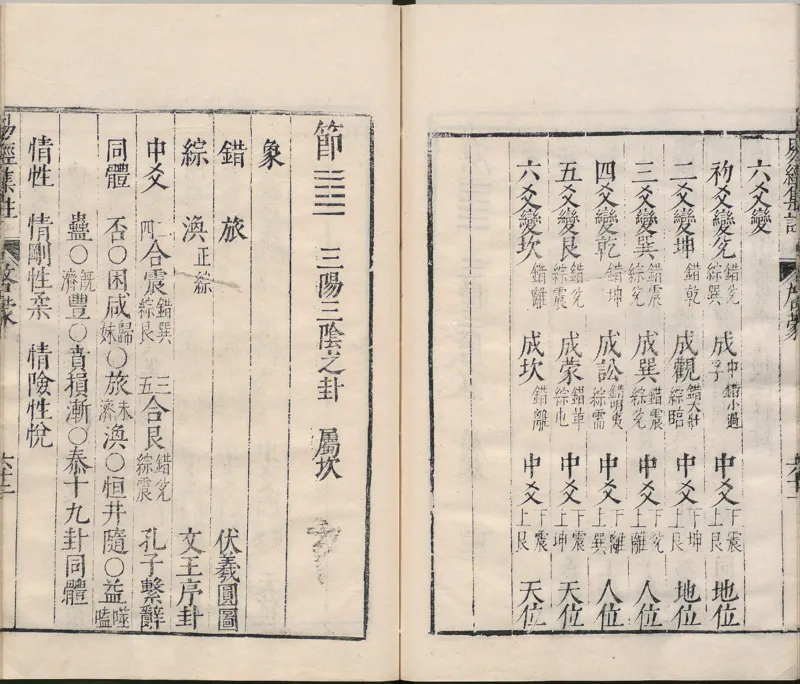 六爻變
初爻變兌 錯艮綜巽 成中孚 錯小過 中爻 下震上艮 地位
二爻變坤 錯乾 成觀 錯大壯綜臨 中爻 下坤上艮 地位
三爻變巽 錯震綜兌 成巽 錯震綜兌 中爻 下兌上離 人位
四爻變乾 錯坤 成訟 錯明夷綜需 中爻 下離上巽 人位
五爻變艮 錯兌綜震 成蒙 錯革綜屯 中爻 下震上坤 天位
六爻變坎 錯離 成坎 錯離 中爻 下震上艮 天位
節 三陽三陰之卦 屬坎
象
錯 旅 伏羲圓圖
綜 渙 正綜 文王序卦
中爻 二四合震 錯巽綜艮 三五合艮 錯兌綜震 孔子繫辭
同體 否○困咸歸妹○旅未濟渙○恒井隨○益噬嗑
蠱○既濟豐○賁損漸○泰十九卦同體
情性 情剛性柔 情險性悅
易經集註 啓蒙 六十二